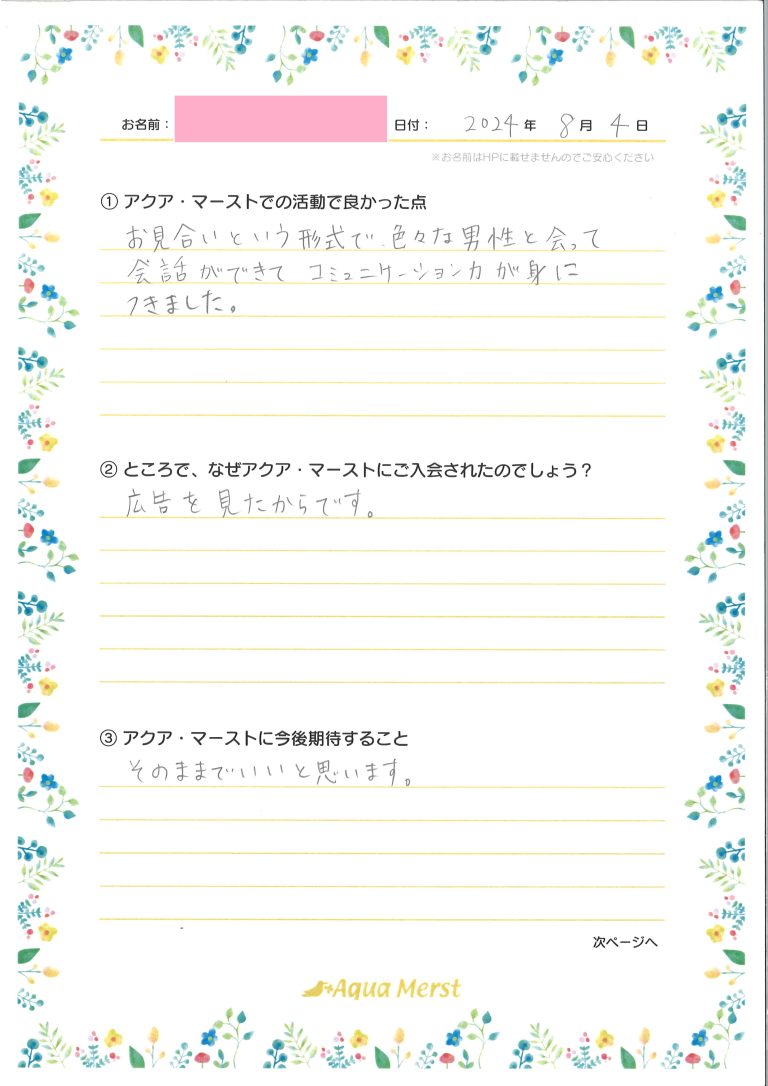 お名前： 日付： 2024年 8月 4日
※お名前はHPに載せませんのでご安心ください
① アクア・マーストでの活動で良かった点
お見合いという形式で、色々な男性と会って
会話ができて コミュニケーション力が身に
つきました。
② ところで、なぜアクア・マーストにご入会されたのでしょう？
広告を見たからです。
③ アクア・マーストに今後期待すること
そのままでいいと思います。
次ページへ
Aqua Merst